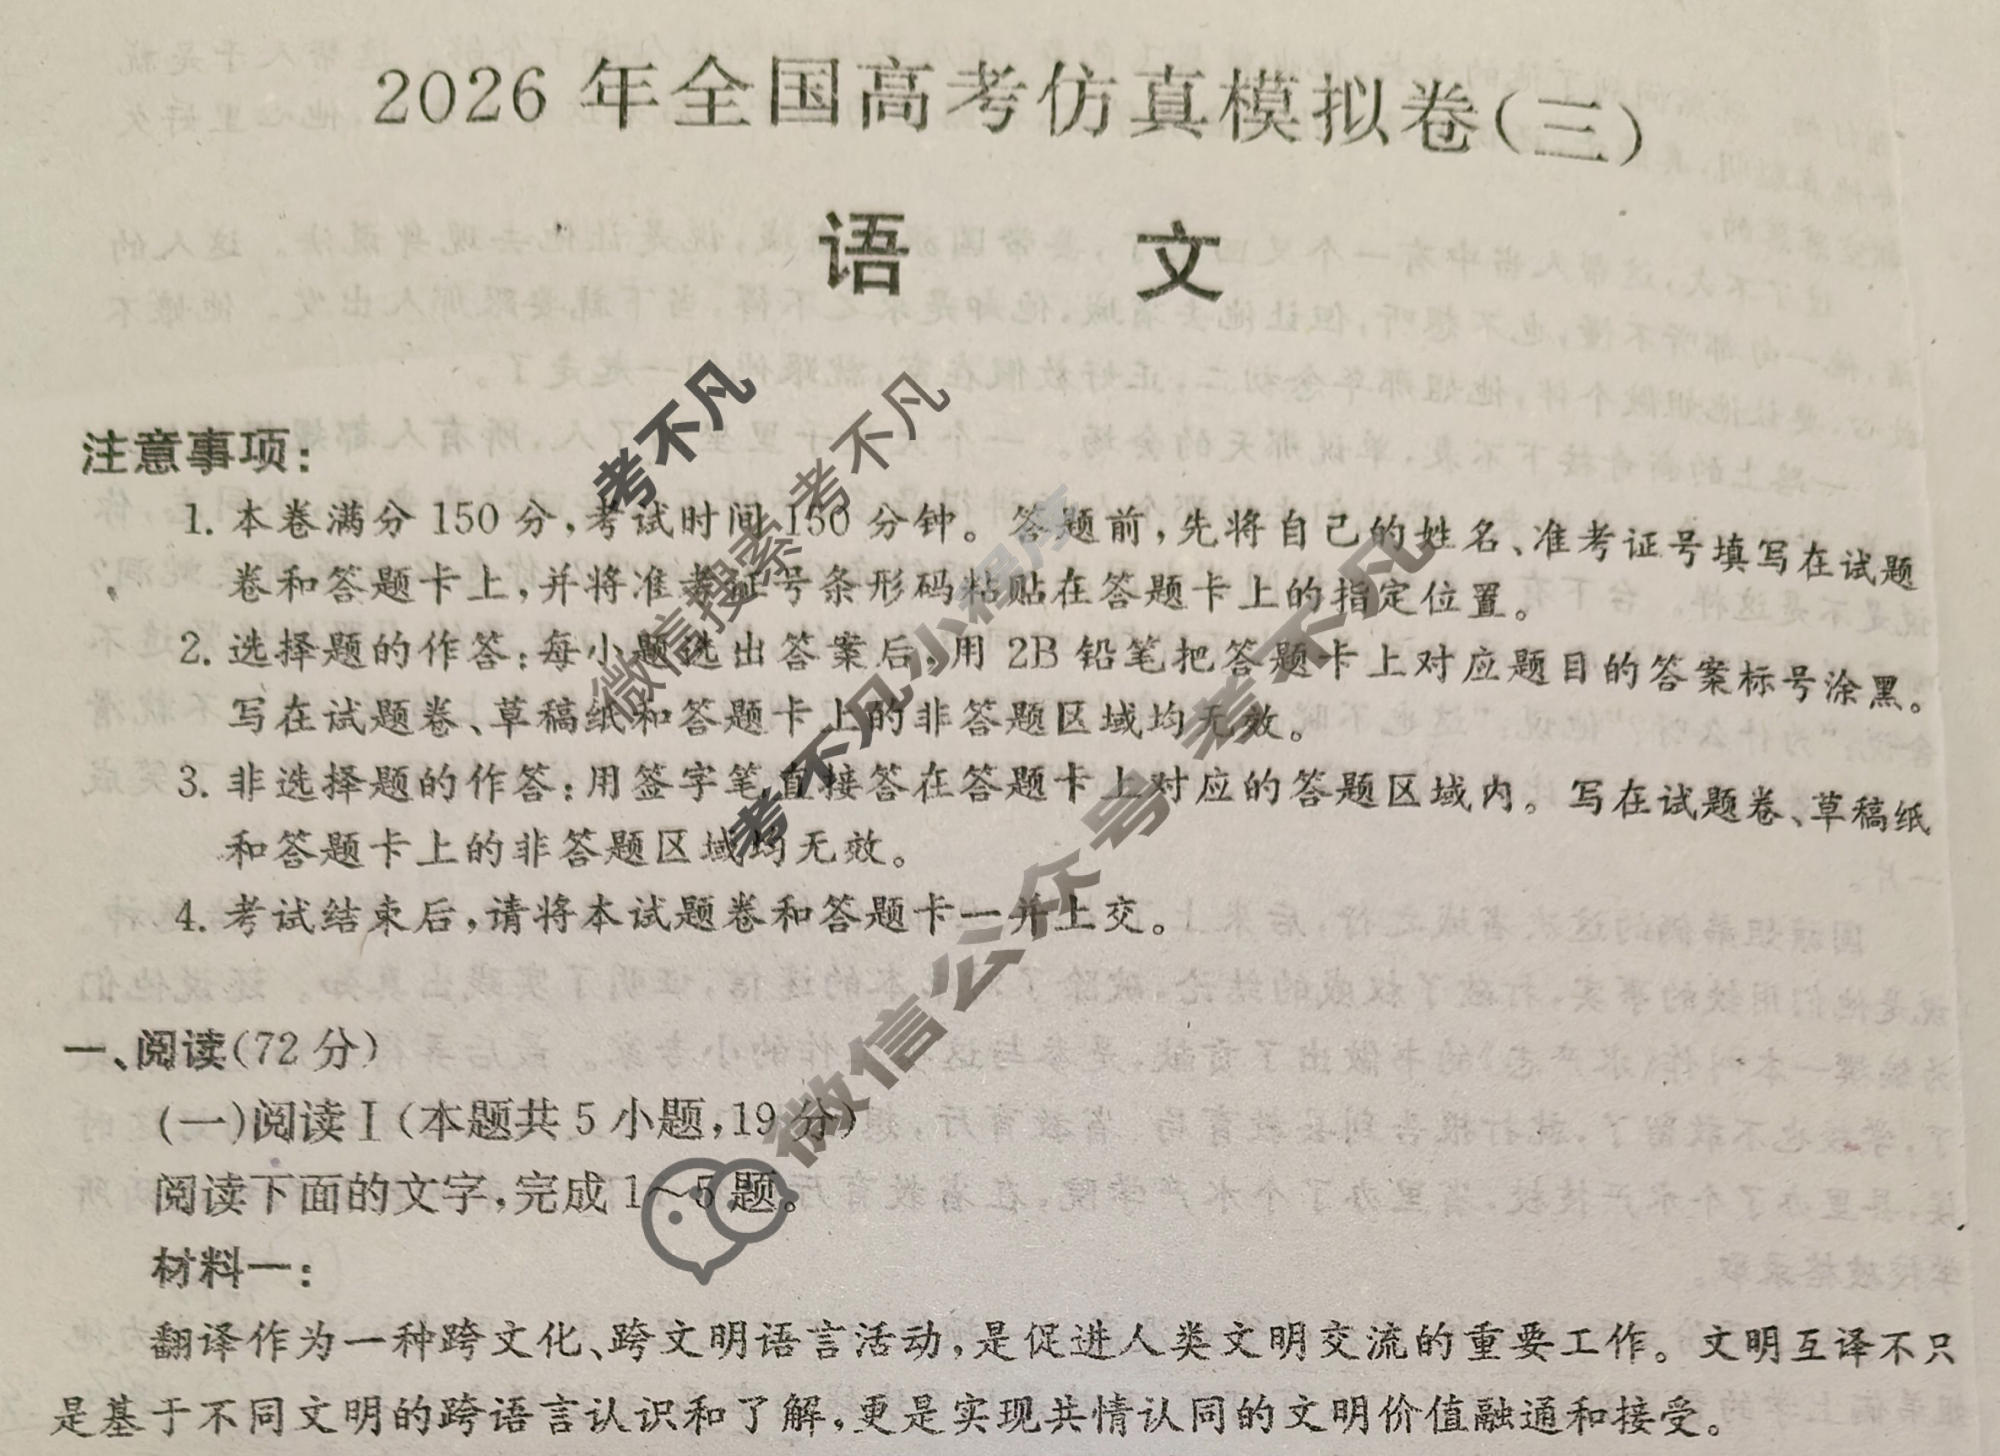 2026年全国高考仿真模拟卷(三)
语 文
注意事项:
1. 本卷满分150分,考试时间150分钟。答题前,先将自己的姓名、准考证号填写在试题
卷和答题卡上,并将准考证号条形码粘贴在答题卡上的指定位置。
2. 选择题的作答:每小题选出答案后,用2B铅笔把答题卡上对应题目的答案标号涂黑。
写在试题卷、草稿纸和答题卡上的非答题区域均无效。
3. 非选择题的作答:用签字笔直接答在答题卡上对应的答题区域内。写在试题卷、草稿纸
和答题卡上的非答题区域均无效。
4. 考试结束后,请将本试题卷和答题卡一并上交。
一、阅读(72分)
(一)阅读Ⅰ(本题共5小题,19分)
阅读下面的文字,完成1~5题。
材料一:
翻译作为一种跨文化、跨文明语言活动,是促进人类文明交流的重要工作。文明互译不只
是基于不同文明的跨语言认识和了解,更是实现共情认同的文明价值融通和接受。
考不凡
微信搜索 考不凡
考不凡小程序
微信公众号 考不凡